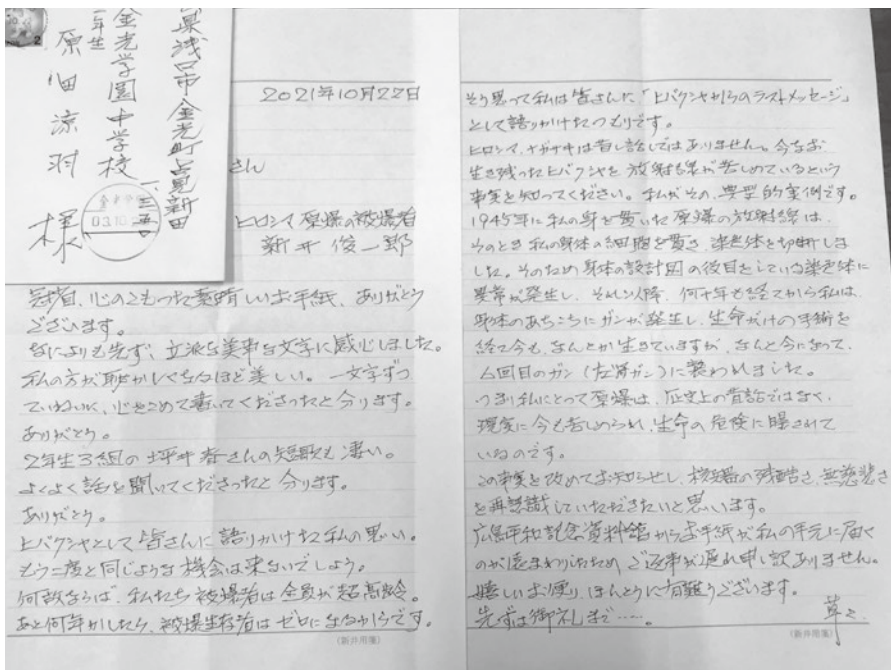 県浅口市金光町占見新田
一、三五〇
金光学園中学校
一年生
様
03.10.
2021年10月22日
さん
ヒロシマ原爆の被爆者
新井俊一郎
冠省、心のこもった素晴しいお手紙、ありがとう
ございます。
なによりも先ず、立派な美事な文字に感心しました。
私の方が恥かしくなるほど美しい。一文字ずつ
ていねいに、心をこめて書いてくださったと分ります。
ありがとう。
2年生3組の坪井春さんの短歌も凄い。
よくよく話を聞いてくださったと分ります。
ありがとう。
ヒバクシャとして皆さんに語りかけた私の思い。
もう二度と同じような機会は来ないでしょう。
何故ならば、私たち被爆者は全員が超高齢。
あと何年かしたら、被爆生存者はゼロになるからです。
(新井用箋)
そう思って私は皆さんに「ヒバクシャからのラストメッセージ」
として語りかけたつもりです。
ヒロシマ、ナガサキは昔し話しではありません。今なお
生き残ったヒバクシャを放射線が苦しめているという
事実を知ってください。私がその、典型的実例です。
1945年に私の身を貫いた原爆の放射線は、
そのとき私の身体の細胞を貫き、染色体を切断しま
した。そのため身体の設計図の役目をしている染色体に
異常が発生し、それ以降、何十年も経てから私は、
身体のあちこちにガンが発生し、生命がけの手術を
経て今も、なんとか生きていますが、なんと今になって、
6回目のガン(左腎ガン)に襲われました。
つまり私にとって原爆は、歴史上の昔話ではなく、
現実に今も苦しめられ、生命の危険に曝されて
いるのです。
この事実を改めてお知らせし、核兵器の残酷さ、無慈悲さ
を再認識していただきたいと思います。
広島平和記念資料館からお手紙が私の手元に届く
のが遅まわりしたため、ご返事が遅れ申し訳ありません。
嬉しいお便り、ほんとうに有難うございます。
先ずは御礼まで……。
草々
(新井用箋)